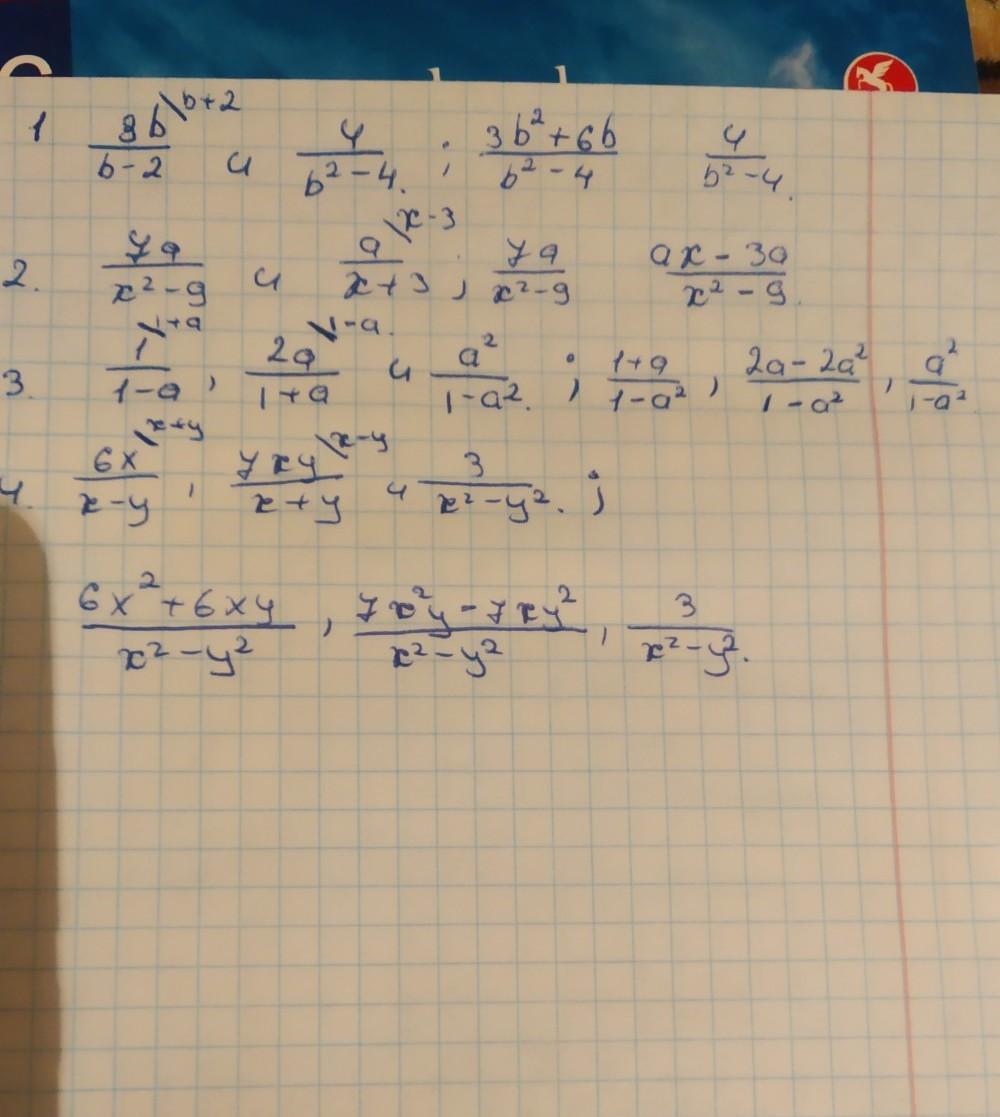 1 3b\b+2/b-2 и 4/b²-4. ; 3b²+6b/b²-4 4/b²-4.
2. 7a/x²-9 и a\x-3/x+3 , 7a/x²-9 ax-3a/x²-9.
3. 1\1+a/1-a , 2a\1-a./1+a и a²/1-a². ; 1+a/1-a² , 2a-2a²/1-a² , a²/1-a²
4. 6x\x+y/x-y , 7xy\x-y/x+y и 3/x²-y². ;
6x²+6xy/x²-y² , 7x²y-7xy²/x²-y² , 3/x²-y².